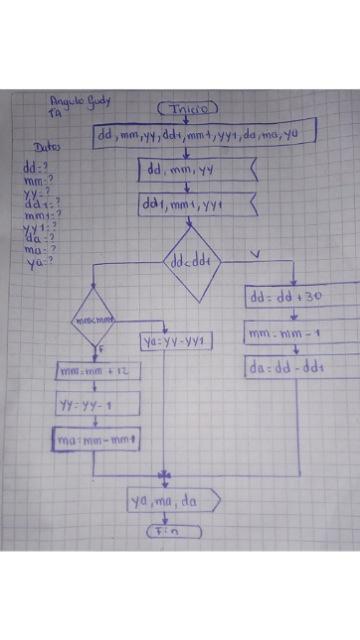 Angulo Gudy
Inicio
dd, mm, yy, dd1, mm1, yy1, da, ma, ya
Datos
dd=?
mm=?
yy=?
dd1=?
mm1=?
yy1=?
da=?
ma=?
ya=?
dd, mm, yy
dd1, mm1, yy1
dd<dd1
V
dd= dd+30
mm-mm-1
da=dd-dd1
mm<mm1
F
ya=yy-yy1
mm=mm+12
yy=yy-1
ma=mm-mm1
ya, ma, da
Fin